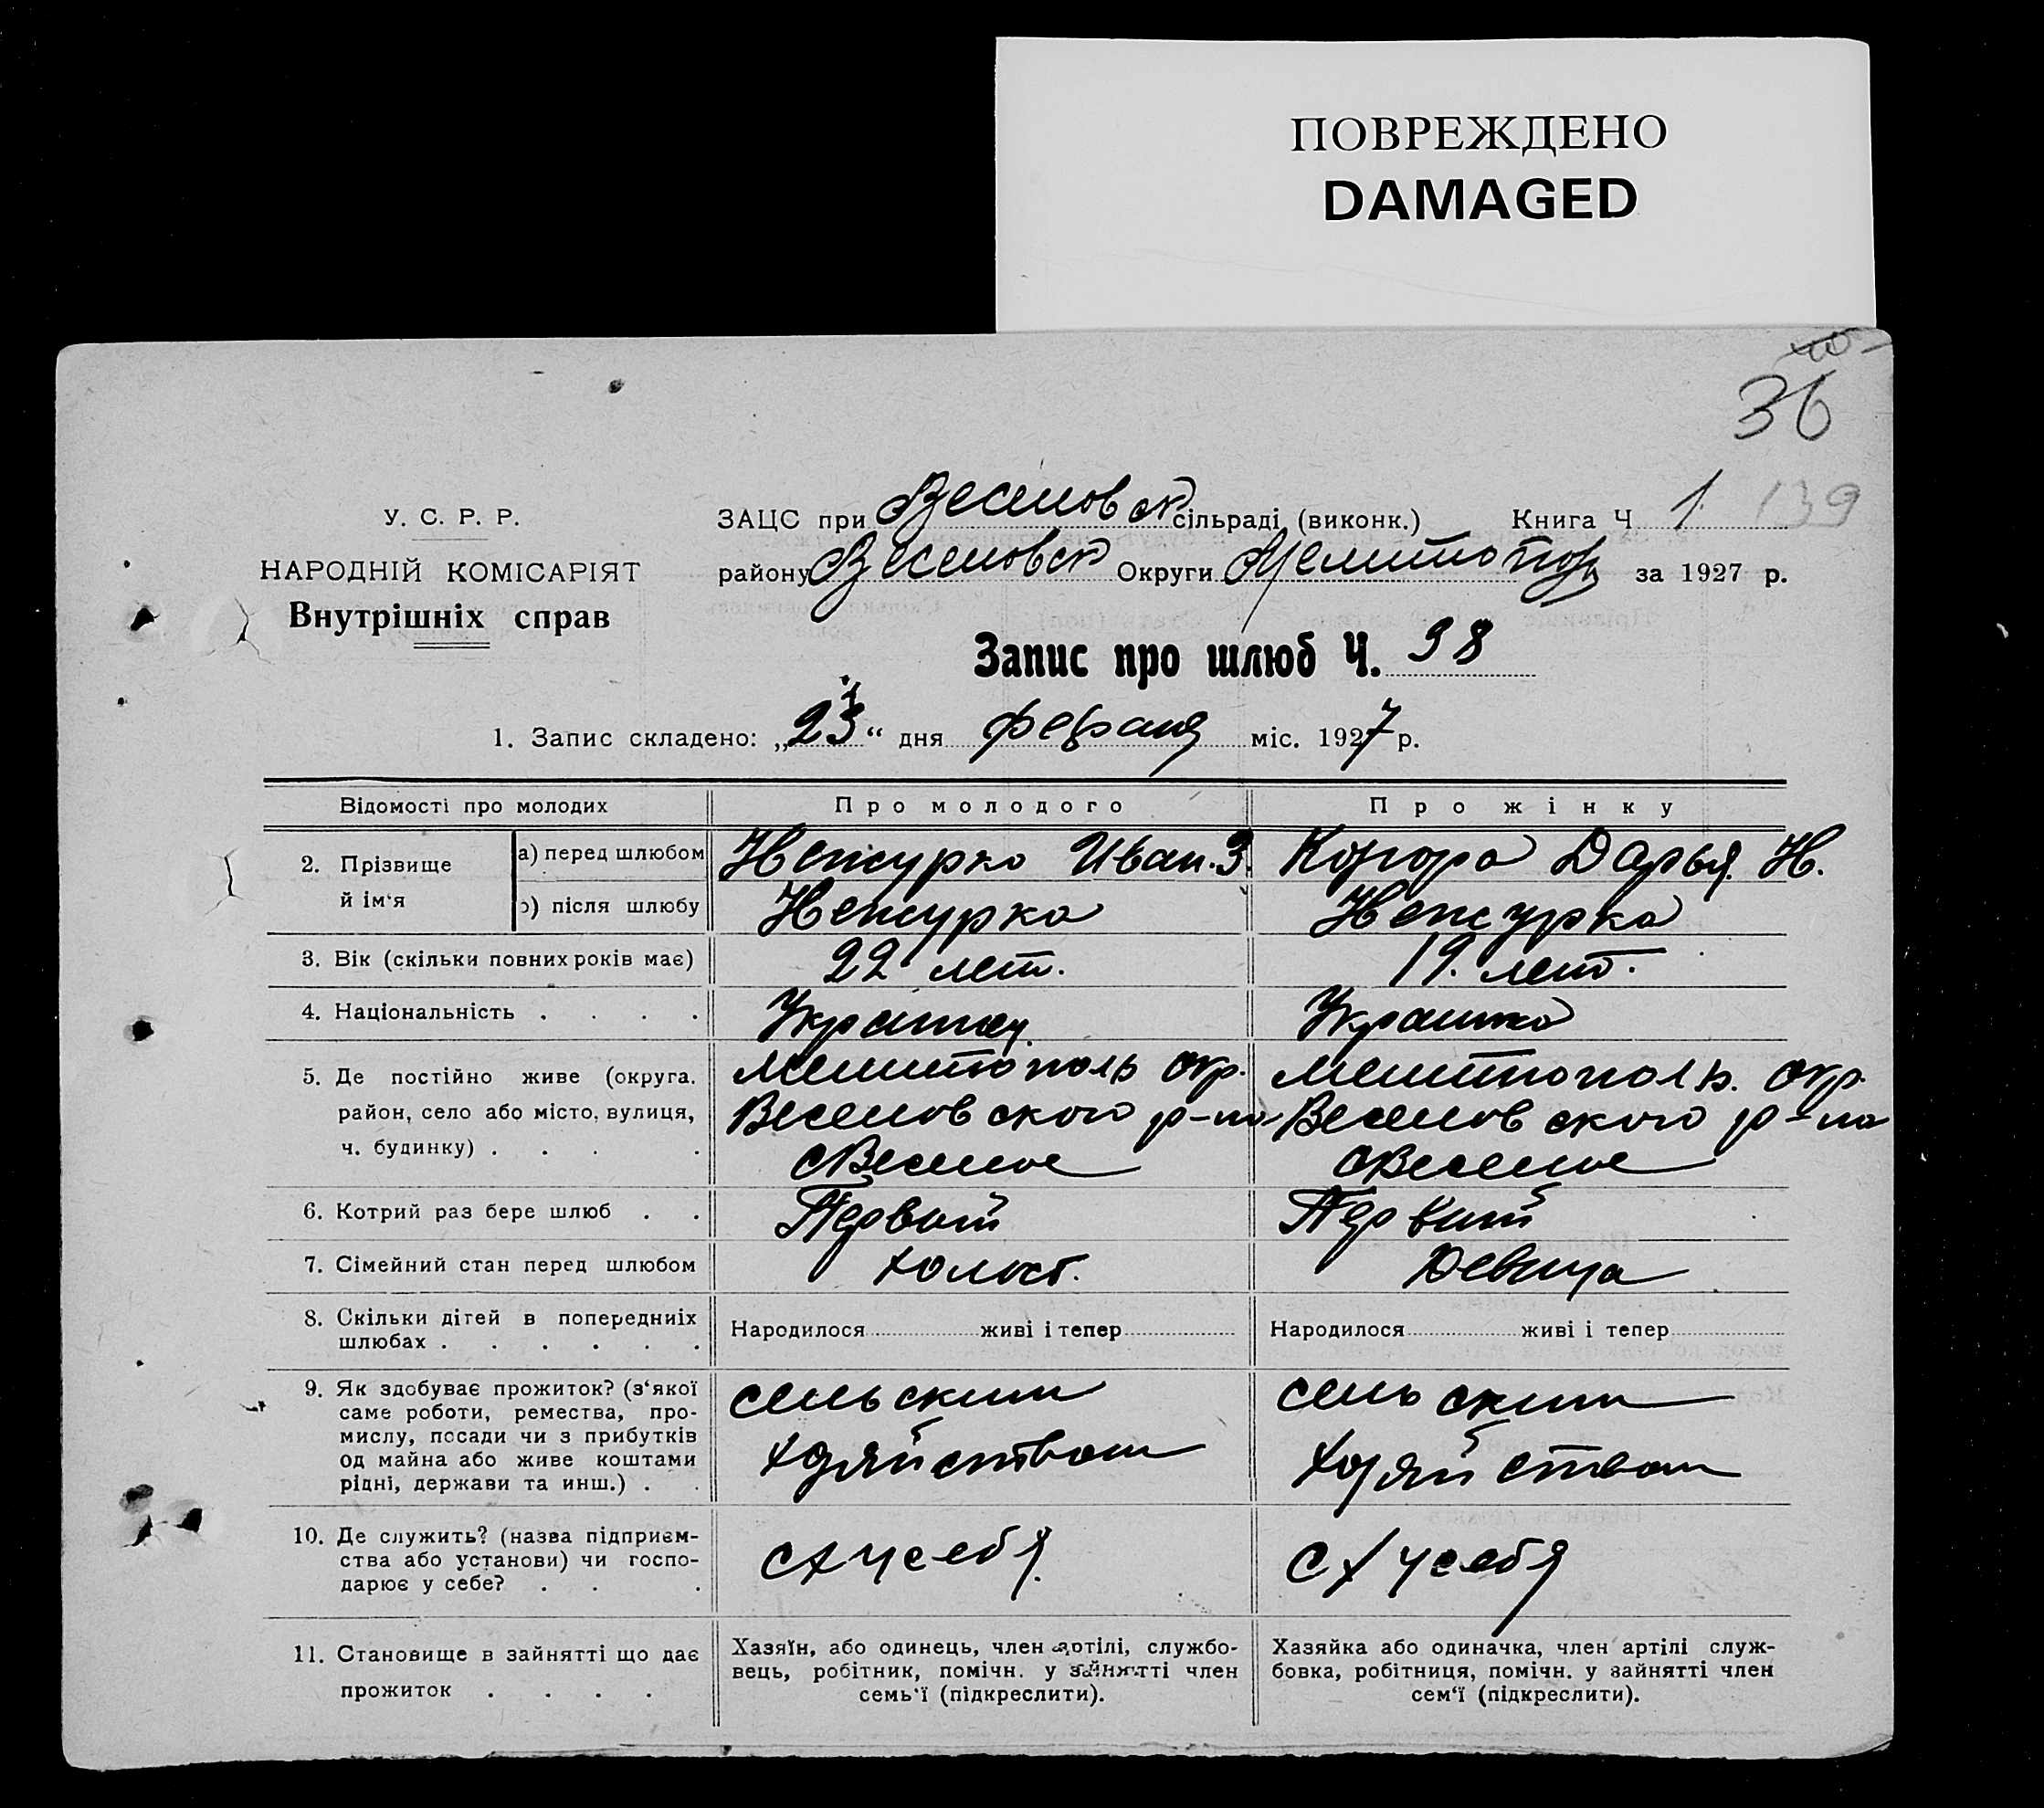 ПОВРЕЖДЕНО
DAMAGED
36
У. С. Р. Р.
НАРОДНІЙ КОМІСАРІЯТ
Внутрішніх справ
ЗАЦС при Веселовск сільраді (виконк.) Книга Ч 1. 139
району Веселовск Округи Мелитопол за 1927 р.
Запис про шлюб Ч. 98
1. Запис складено: „23“ дня февраля міс. 1927 р.
Відомості про молодих
Про молодого
Про жінку
2. Прізвище й ім'я
а) перед шлюбом
Нежурко Иван. З.
Корора Дарья Н.
б) після шлюбу
Нежурко
Нежурко
3. Вік (скільки повних років має)
22 лет.
19. лет.
4. Національність . . . .
Украинец
Украинка
5. Де постійно живе (округа.
район, село або місто, вулиця,
ч. будинку) . . . .
Мелитополь окр.
Веселовского р-на
с Веселое
Мелитополь. окр.
Веселовского р-на
с Веселое
6. Котрий раз бере шлюб . .
Первый
Первый
7. Сімейний стан перед шлюбом
холост.
Девица
8. Скільки дітей в попередніх
шлюбах . . . . . .
Народилося живі і тепер
Народилося живі і тепер
9. Як здобуває прожиток? (з'якої
саме роботи, ремества, про-
мислу, посади чи з прибутків
од майна або живе коштами
рідні, держави та инш.) . .
сельским
хозяйством
сельским
хозяйством
10. Де служить? (назва підприєм-
ства або установи) чи госпо-
дарює у себе? . . .
сх у себя.
сх у себя
11. Становище в зайнятті що дає
прожиток . . . .
Хазяїн, або одинець, член артілі, службо-
вець, робітник, помічн. у зайнятті член
семь'ї (підкреслити).
Хазяйка або одиначка, член артілі служ-
бовка, робітниця, помічн. у зайнятті член
сем'ї (підкреслити).